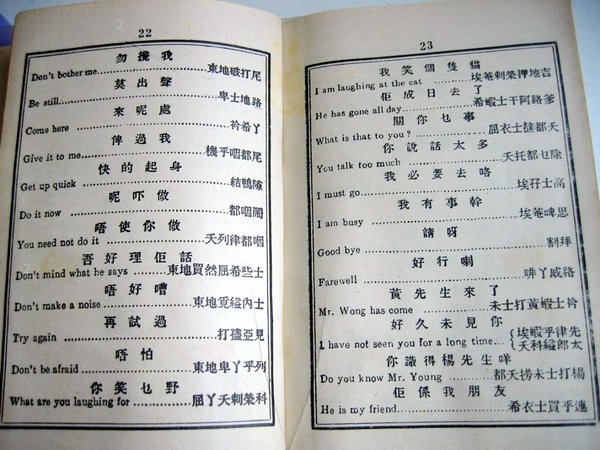 22
勿攪我
Don't bother me 東地破打尾
莫出聲
Be still 卑士地路
來呢處
Come here 衿希丫
俾過我
Give it to me 機乎咽都尾
快的起身
Get up quick 結鴨
呢吓做
Do it now 都咽
唔使你做
You need not do it 天列律都咽
吾好理佢話
Don't mind what he says 東地買然屈希些士
唔好嘈
Don't make a noise 東地覓內士
再試過
Try again 打亞見
唔怕
Don't be afraid 東地卑丫乎列
你笑乜野
What are you laughing for 屈丫天刺榮科
23
我笑個隻貓
I am laughing at the cat 埃菴刺榮押地吉
佢成日去了
He has gone all day 希蝦士干阿路爹
關你乜事
What is that to you? 屈衣士撻都天
你說話太多
You talk too much 天托都乜除
我必要去咯
I must go 埃孖士高
我有事幹
I am busy 埃菴啤思
請呀
Good bye 割拜
好行喇
Farewell 丫威路
黃先生來了
Mr. Wong has come 未士打黃蝦士衿
好久未見你
I have not seen you for a long time 埃蝦乎律先
天科郎太
你識得楊先生咩
Do you know Mr. Young 都天撈未士打楊
佢係我朋友
He is my friend 希衣士買乎連